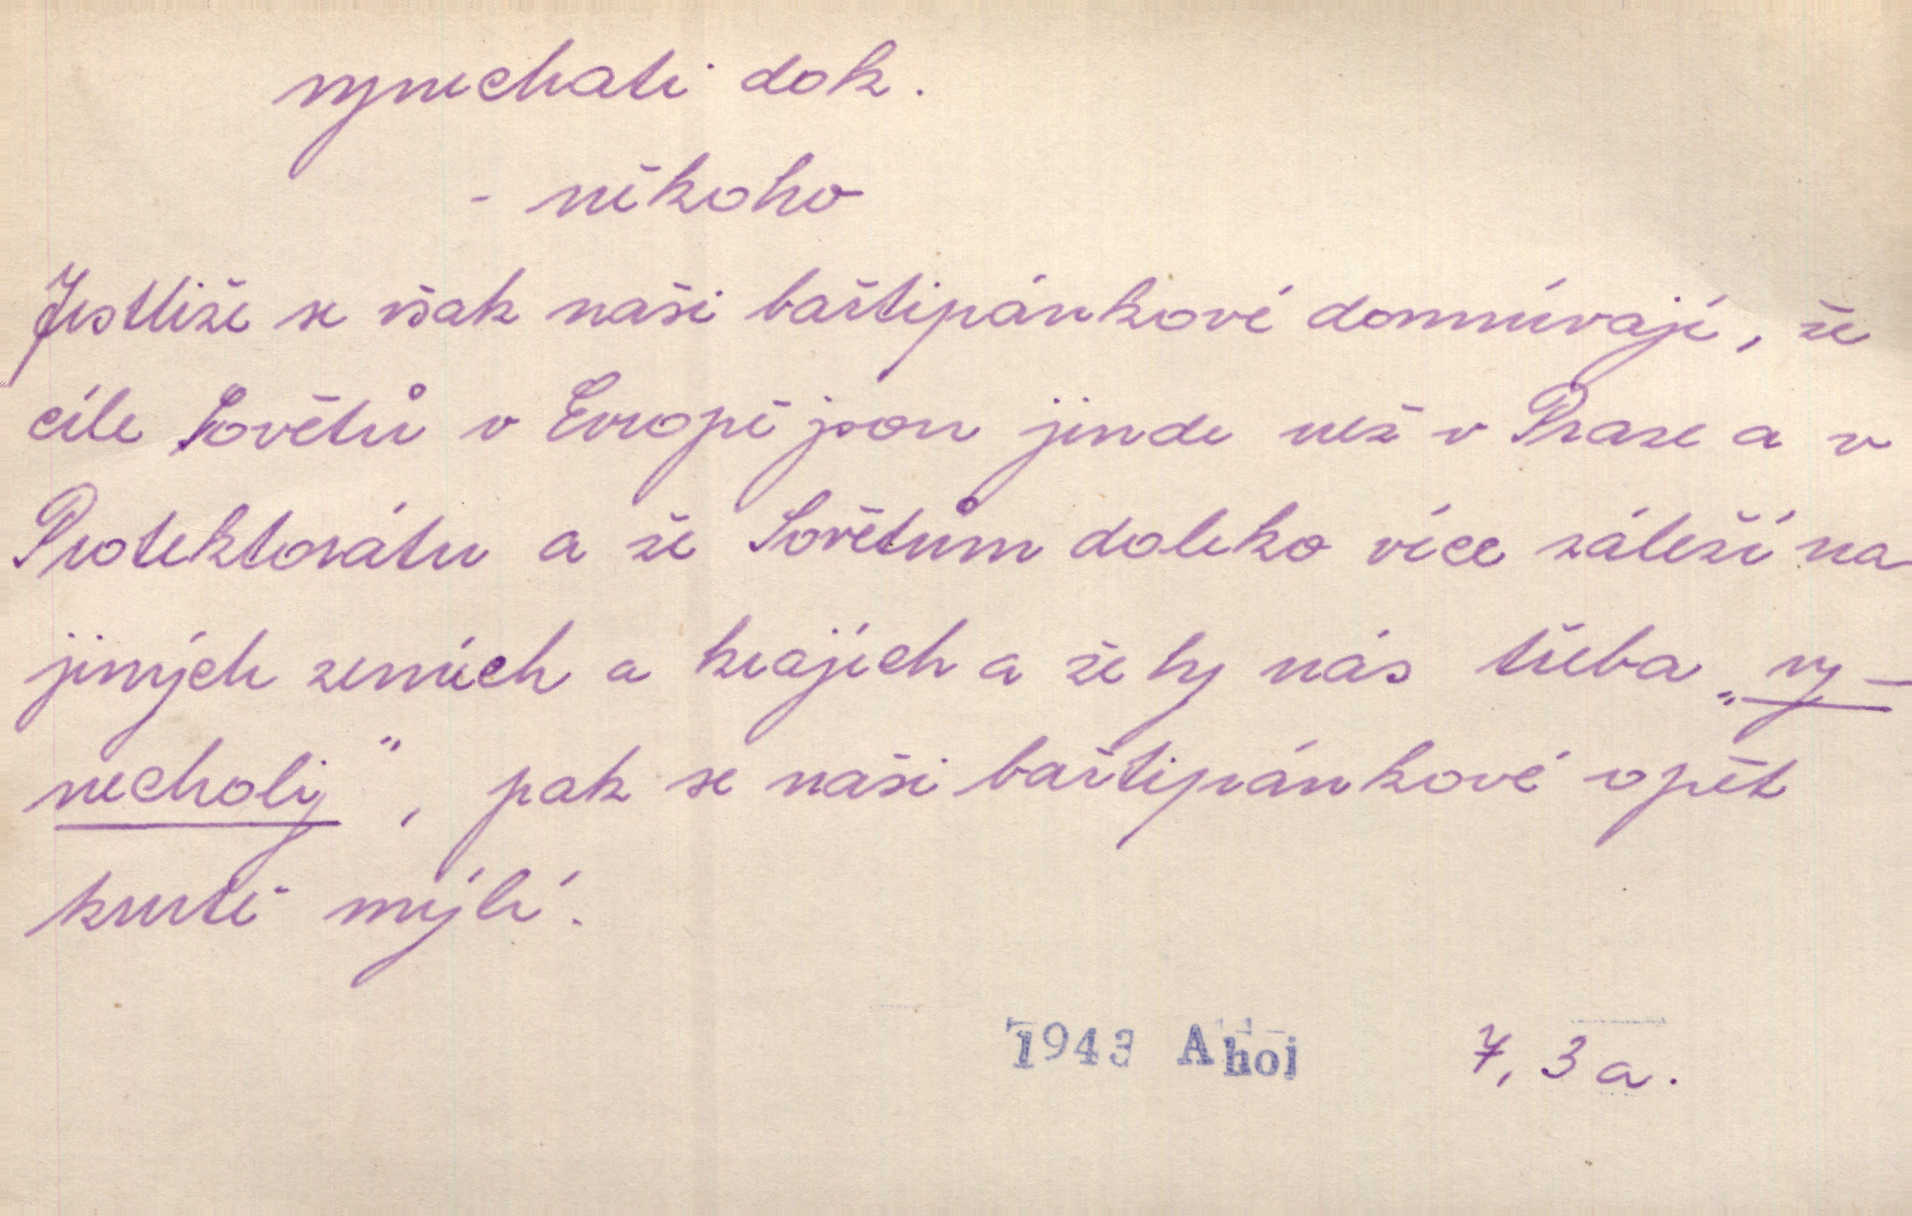 vynechati dok.
- někoho
Jestliže se však naši baštipánkové domnívají, že
cíle Sovětů v Evropě jsou jinde než v Praze a v
Protektorátu a že Sovětům daleko více záleží na
jiných zemích a krajích a že by nás třeba „vy-
nechaly", pak se naši baštipánkové opět
krutě mýlí.
1943 Ahoj 7, 3 a.